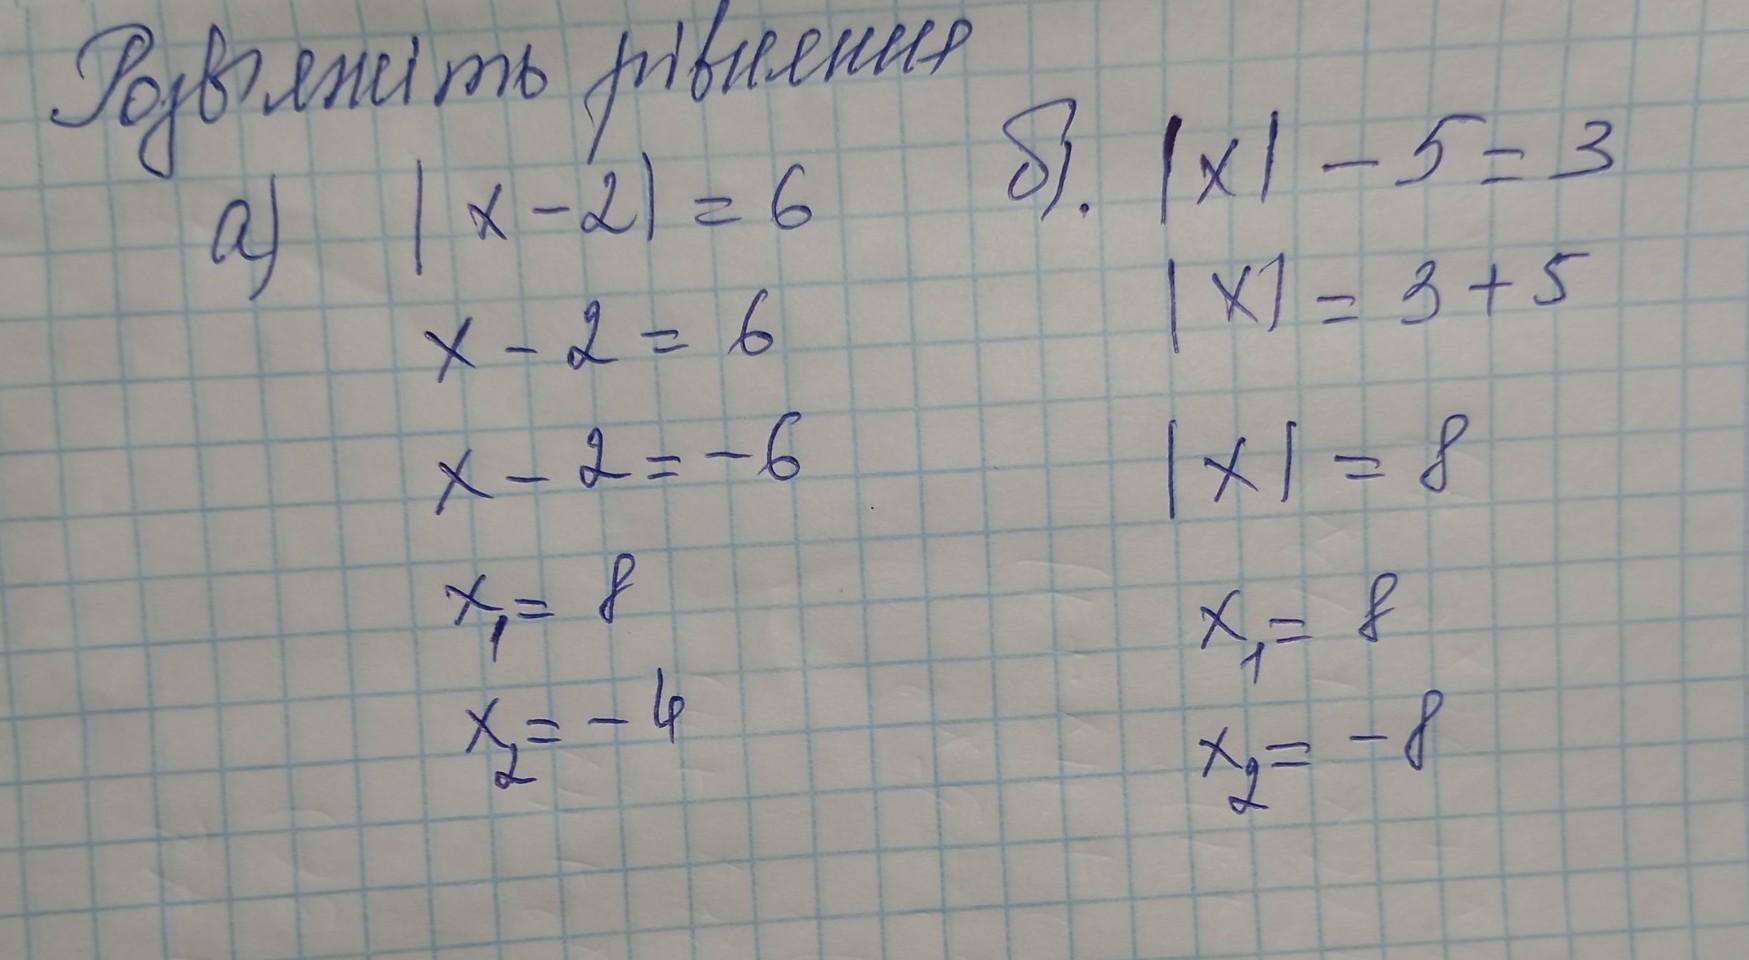 Розв'яжіть рівняння
а) |x - 2| = 6
x - 2 = 6
x - 2 = -6
x₁ = 8
x₂ = -4
б). |x| - 5 = 3
|x| = 3 + 5
|x| = 8
x₁ = 8
x₂ = -8